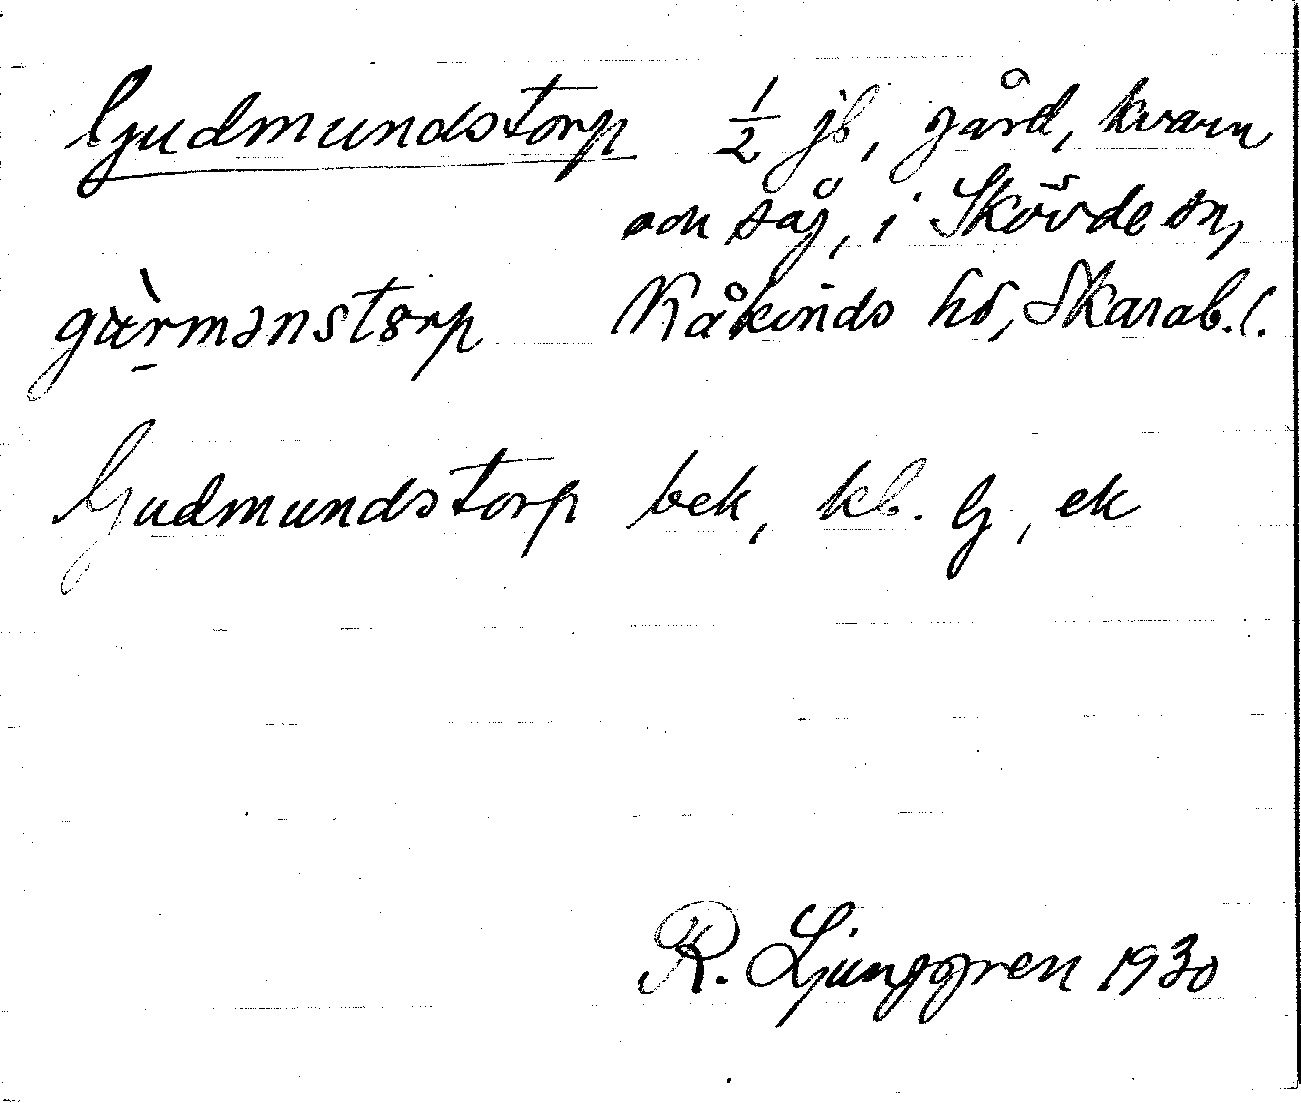 Gudmundstorp ½ jb, gård, kvarn
och såg, i Skövde sn,
gu̠̇̀rmənstɔrp Kåkinds hd, Skarab. l.
Gudmundstorp bek, kb. G, ek
R. Ljunggren 1930